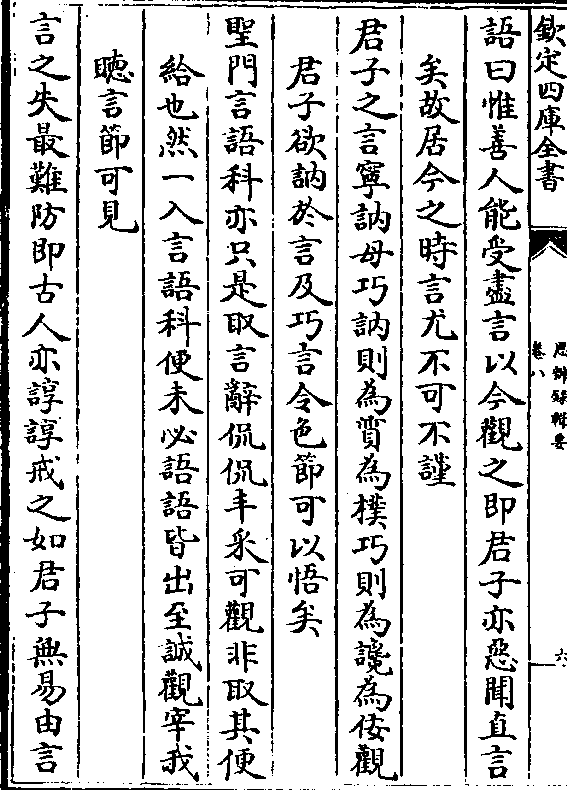 欽定四庫全書
思辨録輯要
卷八
六
語曰惟善人能受盡言以今觀之即君子亦惡聞直言
矣故居今之時言尤不可不謹
君子之言寧訥毋巧訥則為質為樸巧則為讒為佞觀
君子欲訥於言及巧言令色節可以悟矣
聖門言語科亦只是取言辭侃侃丰采可觀非取其便
給也然一入言語科便未必語語皆出至誠觀宰我
聽言節可見
言之失最難防即古人亦諄諄戒之如君子無易由言